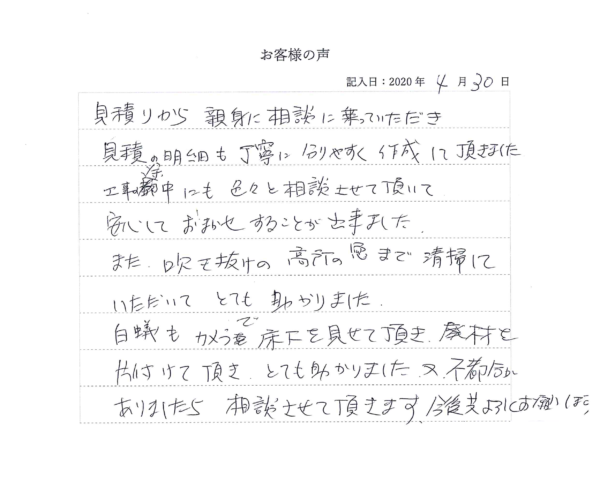 お客様の声
記入日：2020年 4月30日
見積りから 親身に相談に乗っていただき
見積の明細も丁寧に 分りやすく 作成して頂きました
工事の途中にも 色々と相談させて頂いて
安心して おまかせすることが出来ました.
また. 吹き抜けの 高所の窓まで 清掃して
いただいて とても 助かりました.
白蟻も カメラで 床下を見せて頂き. 廃材を
片付けて頂き. とても助かりました 又. 不都合が
ありましたら 相談させて頂きます. 今後共よろしくお願いします